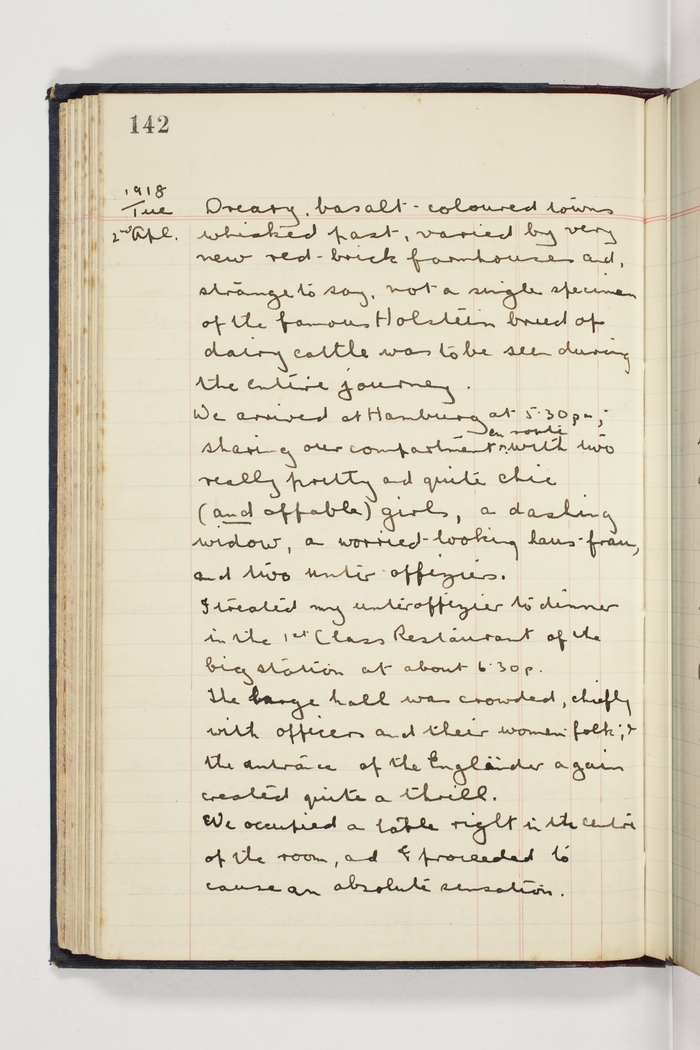 142
1918
Tue
2nd Apl.
Dreary, basalt-coloured towns
whisked past, varied by very
new red-brick farmhouses and,
strange to say, not a single specimen
of the famous Holstein breed of
dairy cattle was to be seen during
the entire journey.
We arrived at Hamburg at 5.30 pm;
en route
sharing our compartment with two
really pretty and quite chic
(and affable) girls, a dashing
widow, a worried-looking haus-frau,
and two unter-offiziers.
I treated my unteroffizier to dinner
in the 1st Class Restaurant of the
big station at about 6.30 p.
The large hall was crowded, chiefly
with officers and their women folk; &
the entrance of the Engländer again
created quite a thrill.
We occupied a table right in the centre
of the room, and I proceeded to
cause an absolute sensation.